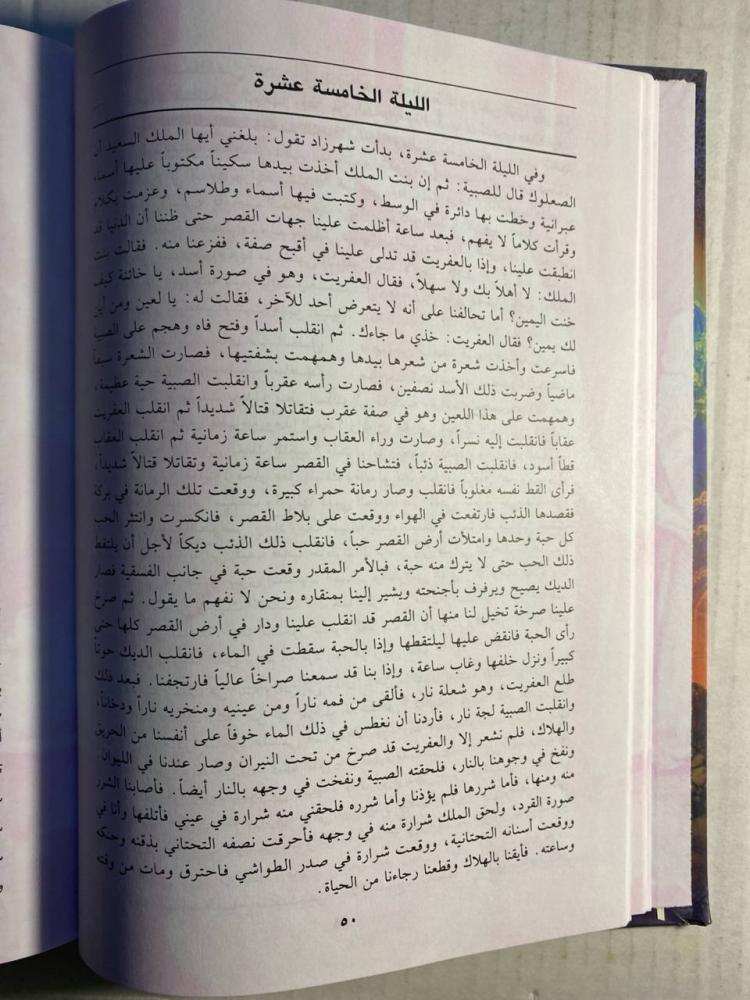 الليلة الخامسة عشرة
وفي الليلة الخامسة عشرة، بدأت شهرزاد تقول: بلغني أيها الملك السعيد أن
الصعلوك قال للصبية: ثم إن بنت الملك أخذت بيدها سكيناً مكتوباً عليها أسماء
عبرانية وخطت بها دائرة في الوسط، وكتبت فيها أسماء وطلاسم، وعزمت بكلام
وقرأت كلاماً لا يفهم، فبعد ساعة أظلمت علينا جهات القصر حتى ظننا أن الدنيا قد
انطبقت علينا، وإذا بالعفريت قد تدلى علينا في أقبح صفة، ففزعنا منه. فقالت بنت
الملك: لا أهلاً بك ولا سهلاً، فقال العفريت، وهو في صورة أسد، يا خائنة كيف
خنت اليمين؟ أما تحالفنا على أنه لا يتعرض أحد للآخر، فقالت له: يا لعين ومن أين
لك يمين؟ فقال العفريت: خذي ما جاءك. ثم انقلب أسداً وفتح فاه وهجم على الصبية
فاسرعت وأخذت شعرة من شعرها بيدها وهمهمت بشفتيها، فصارت الشعرة سيفاً
ماضياً وضربت ذلك الأسد نصفين، فصارت رأسه عقرباً وانقلبت الصبية حية عظيمة،
وهمهمت على هذا اللعين وهو في صفة عقرب فتقاتلا قتالاً شديداً ثم انقلب العقرب
عقاباً فانقلبت إليه نسراً، وصارت وراء العقاب واستمر ساعة زمانية ثم انقلب العقاب
قطاً أسود، فانقلبت الصبية ذئباً، فتشاحنا في القصر ساعة زمانية وتقاتلا قتالاً شديداً،
فرأى القط نفسه مغلوباً فانقلب وصار رمانة حمراء كبيرة، ووقعت تلك الرمانة في بركة
فقصدها الذئب فارتفعت في الهواء ووقعت على بلاط القصر، فانكسرت وانتثر الحب
كل حبة وحدها وامتلأت أرض القصر حباً، فانقلب ذلك الذئب ديكاً لأجل أن يلتقط
ذلك الحب حتى لا يترك منه حبة، فبالأمر المقدر وقعت حبة في جانب الفسقية فصار
الديك يصيح ويرفرف بأجنحته ويشير إلينا بمنقاره ونحن لا نفهم ما يقول. ثم صرخ
علينا صرخة تخيل لنا منها أن القصر قد انقلب علينا ودار في أرض القصر كلها حتى
رأى الحبة فانقض عليها ليلتقطها وإذا بالحبة سقطت في الماء، فانقلب الديك حوتاً
كبيراً ونزل خلفها وغاب ساعة، وإذا بنا قد سمعنا صراخاً عالياً فارتجفنا. فبعد ذلك
طلع العفريت، وهو شعلة نار، فألقى من فمه ناراً ومن عينيه ومنخريه ناراً ودخاناً،
وانقلبت الصبية لجة نار، فأردنا أن نغطس في ذلك الماء خوفاً على أنفسنا من الحريق
والهلاك، فلم نشعر إلا والعفريت قد صرخ من تحت النيران وصار عندنا في الليوان
ونفخ في وجوهنا بالنار، فلحقته الصبية ونفخت في وجهه بالنار أيضاً. فأصابنا الشرر
منه ومنها، فأما شررها فلم يؤذنا وأما شرره فلحقني منه شرارة في عيني فأتلفها وأنا في
صورة القرد، ولحق الملك شرارة منه في وجهه فأحرقت نصفه التحتاني بذقنه وحنكه
ووقعت أسنانه التحتانية، ووقعت شرارة في صدر الطواشي فاحترق ومات من وقته
وساعته. فأيقنا بالهلاك وقطعنا رجاءنا من الحياة.
٥٠